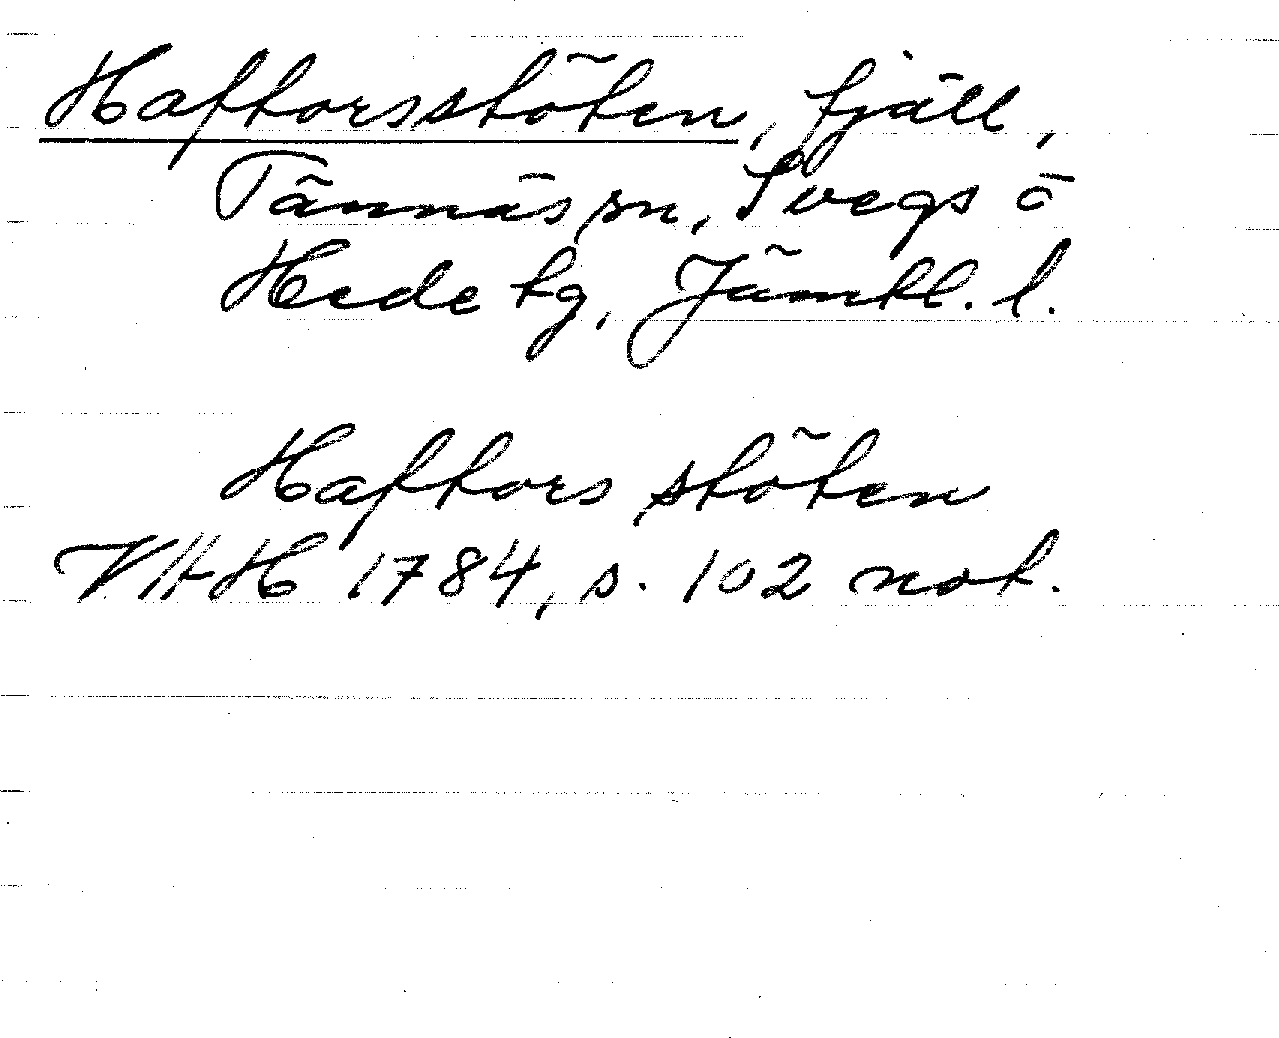 Haftorsstöten, fjäll,
Tännäs sn, Svegs o
Hede tg, Jämtl. l.
Haftors stöten
VHAH 1784, s. 102 not.